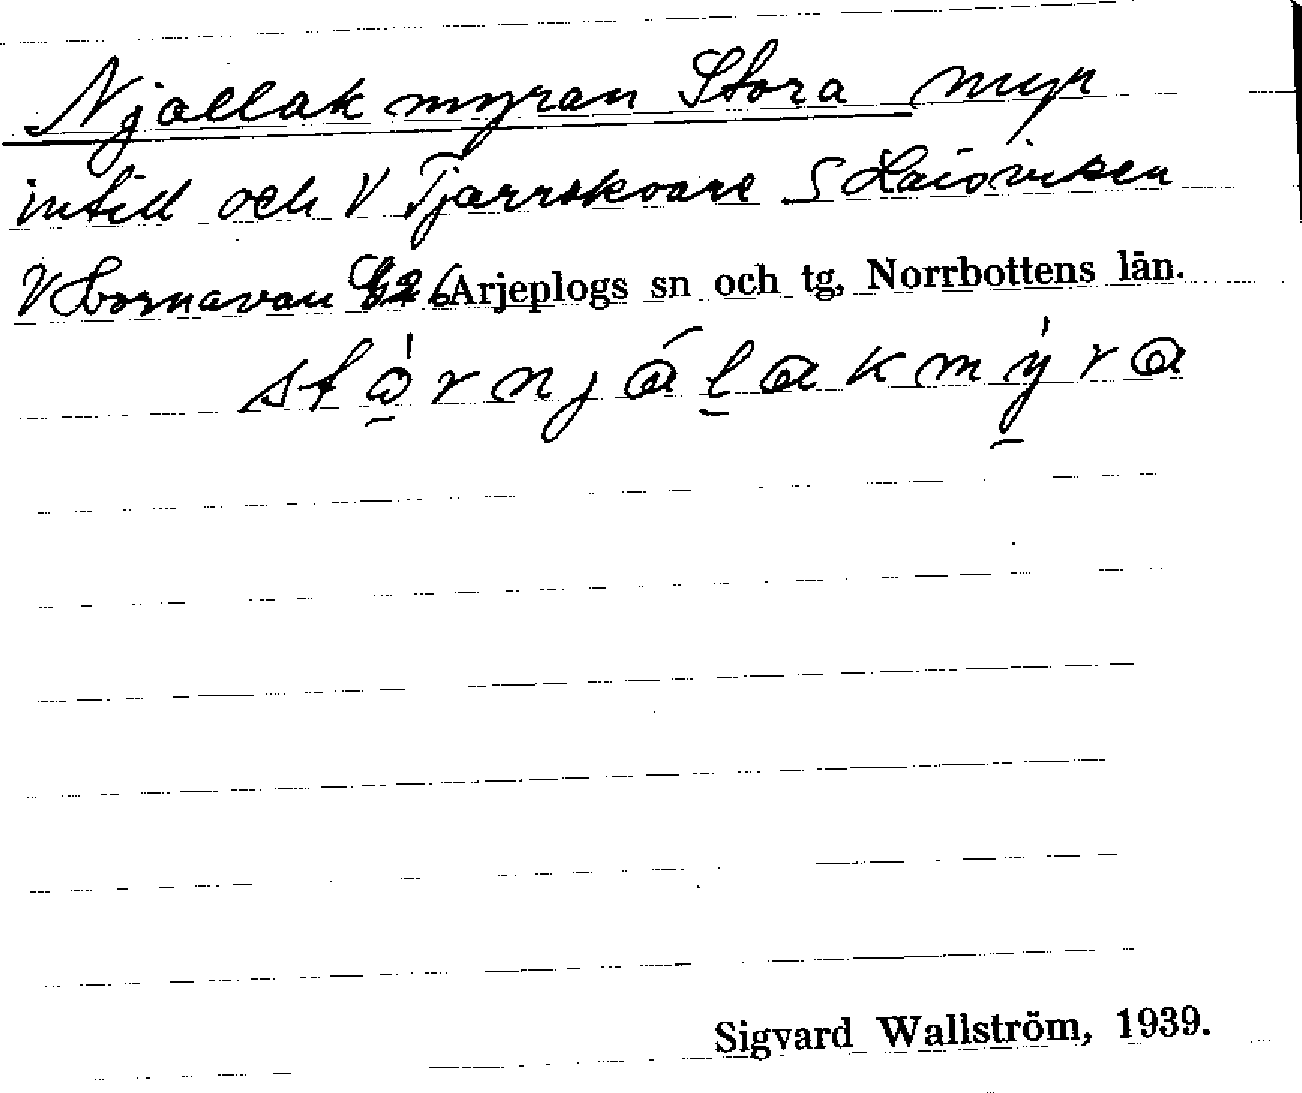 Njallakmyran Stora myr
intill och V Tjarrskvare S Laisviken
V Hornavan G26 Arjeplogs sn och tg, Norrbottens län.
stórnjálakmýra
Sigvard Wallström, 1939.